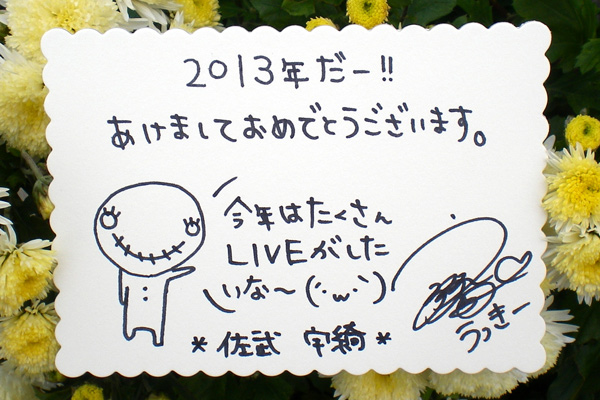 2013年だー!!
あけましておめでとうございます。
今年はたくさん
LIVEがした
いな〜(´･ω･`)
*佐武 宇綺*
うっきー